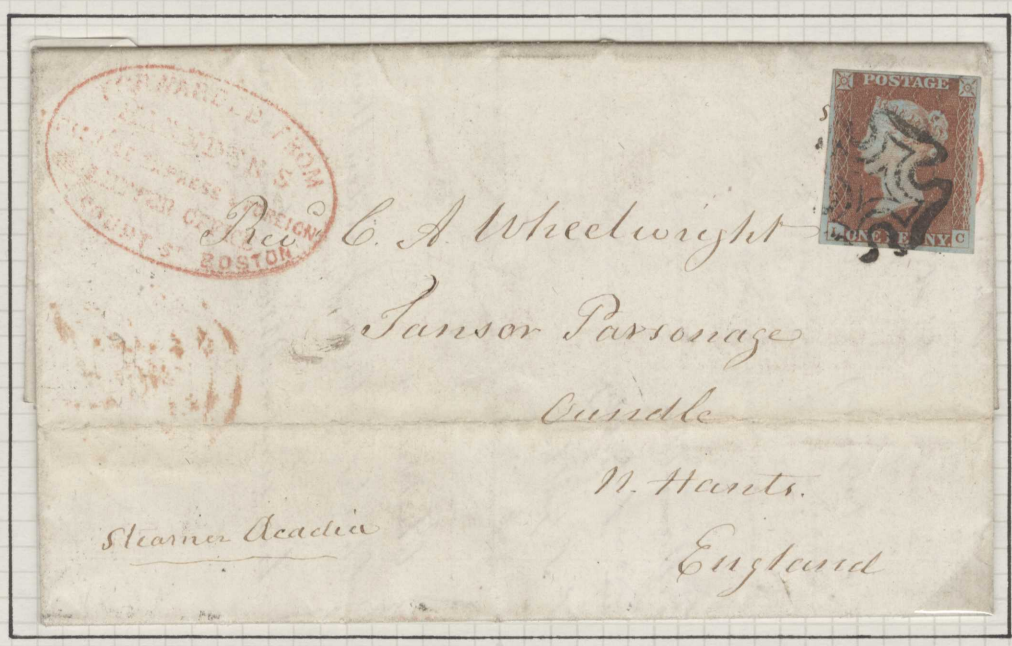 FORWARDED FROM
HARNDEN'S
EXPRESS & FOREIGN
LETTER OFFICE
COURT St. BOSTON
POSTAGE
ONE PENNY
C
Rev C. A. Wheelwright
Tansor Parsonage
Oundle
N. Hants.
England
Steamer Acadia